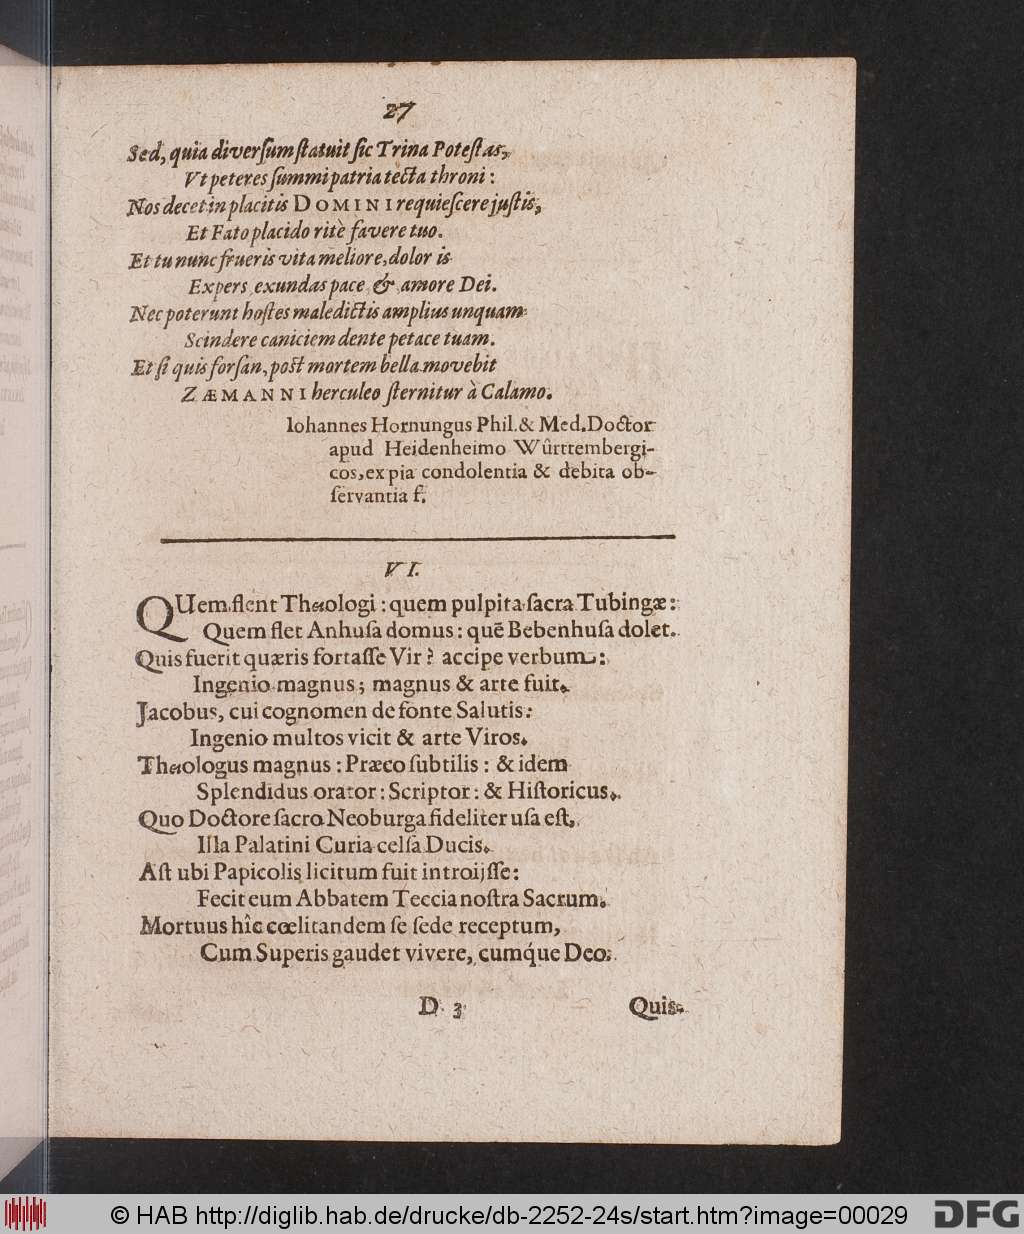 27
Sed, quia diverſum ſtatuit ſic Trina Poteſtas,
Vt peteres ſummi patria tecta throni:
Nos decet in placitis DOMINI requieſcere juſtis,
Et Fato placido ritè favere tuo.
Et tu nunc frueris vita meliore, dolor is
Expers exundas pace & amore Dei.
Nec poterunt hoſtes maledictis amplius unquam
Scindere caniciem dente petace tuam.
Et ſi quis forſan, poſt mortem bella movebit
ZÆMANNI herculeo ſternitur à Calamo.
Iohannes Hornungus Phil. & Med. Doctor
apud Heidenheimo Wûrttembergi-
cos, ex pia condolentia & debita ob-
ſervantia f.
VI.
QUem flent Theologi: quem pulpita ſacra Tubingæ:
Quem flet Anhuſa domus: quē Bebenhuſa dolet.
Quis fuerit quæris fortaſſe Vir? accipe verbum:
Ingenio magnus; magnus & arte fuit.
Jacobus, cui cognomen de fonte Salutis:
Ingenio multos vicit & arte Viros.
Theologus magnus: Præco ſubtilis: & idem
Splendidus orator: Scriptor: & Hiſtoricus.
Quo Doctore ſacro Neoburga fideliter uſa eſt,
Illa Palatini Curia celſa Ducis.
Aſt ubi Papicolis licitum fuit introijſſe:
Fecit eum Abbatem Teccia noſtra Sacrum.
Mortuus hîc cœli tandem ſe ſede receptum,
Cum Superis gaudet vivere, cumq́ue Deo.
D 3 Quis
© HAB http://diglib.hab.de/drucke/db-2252-24s/start.htm?image=00029
DFG